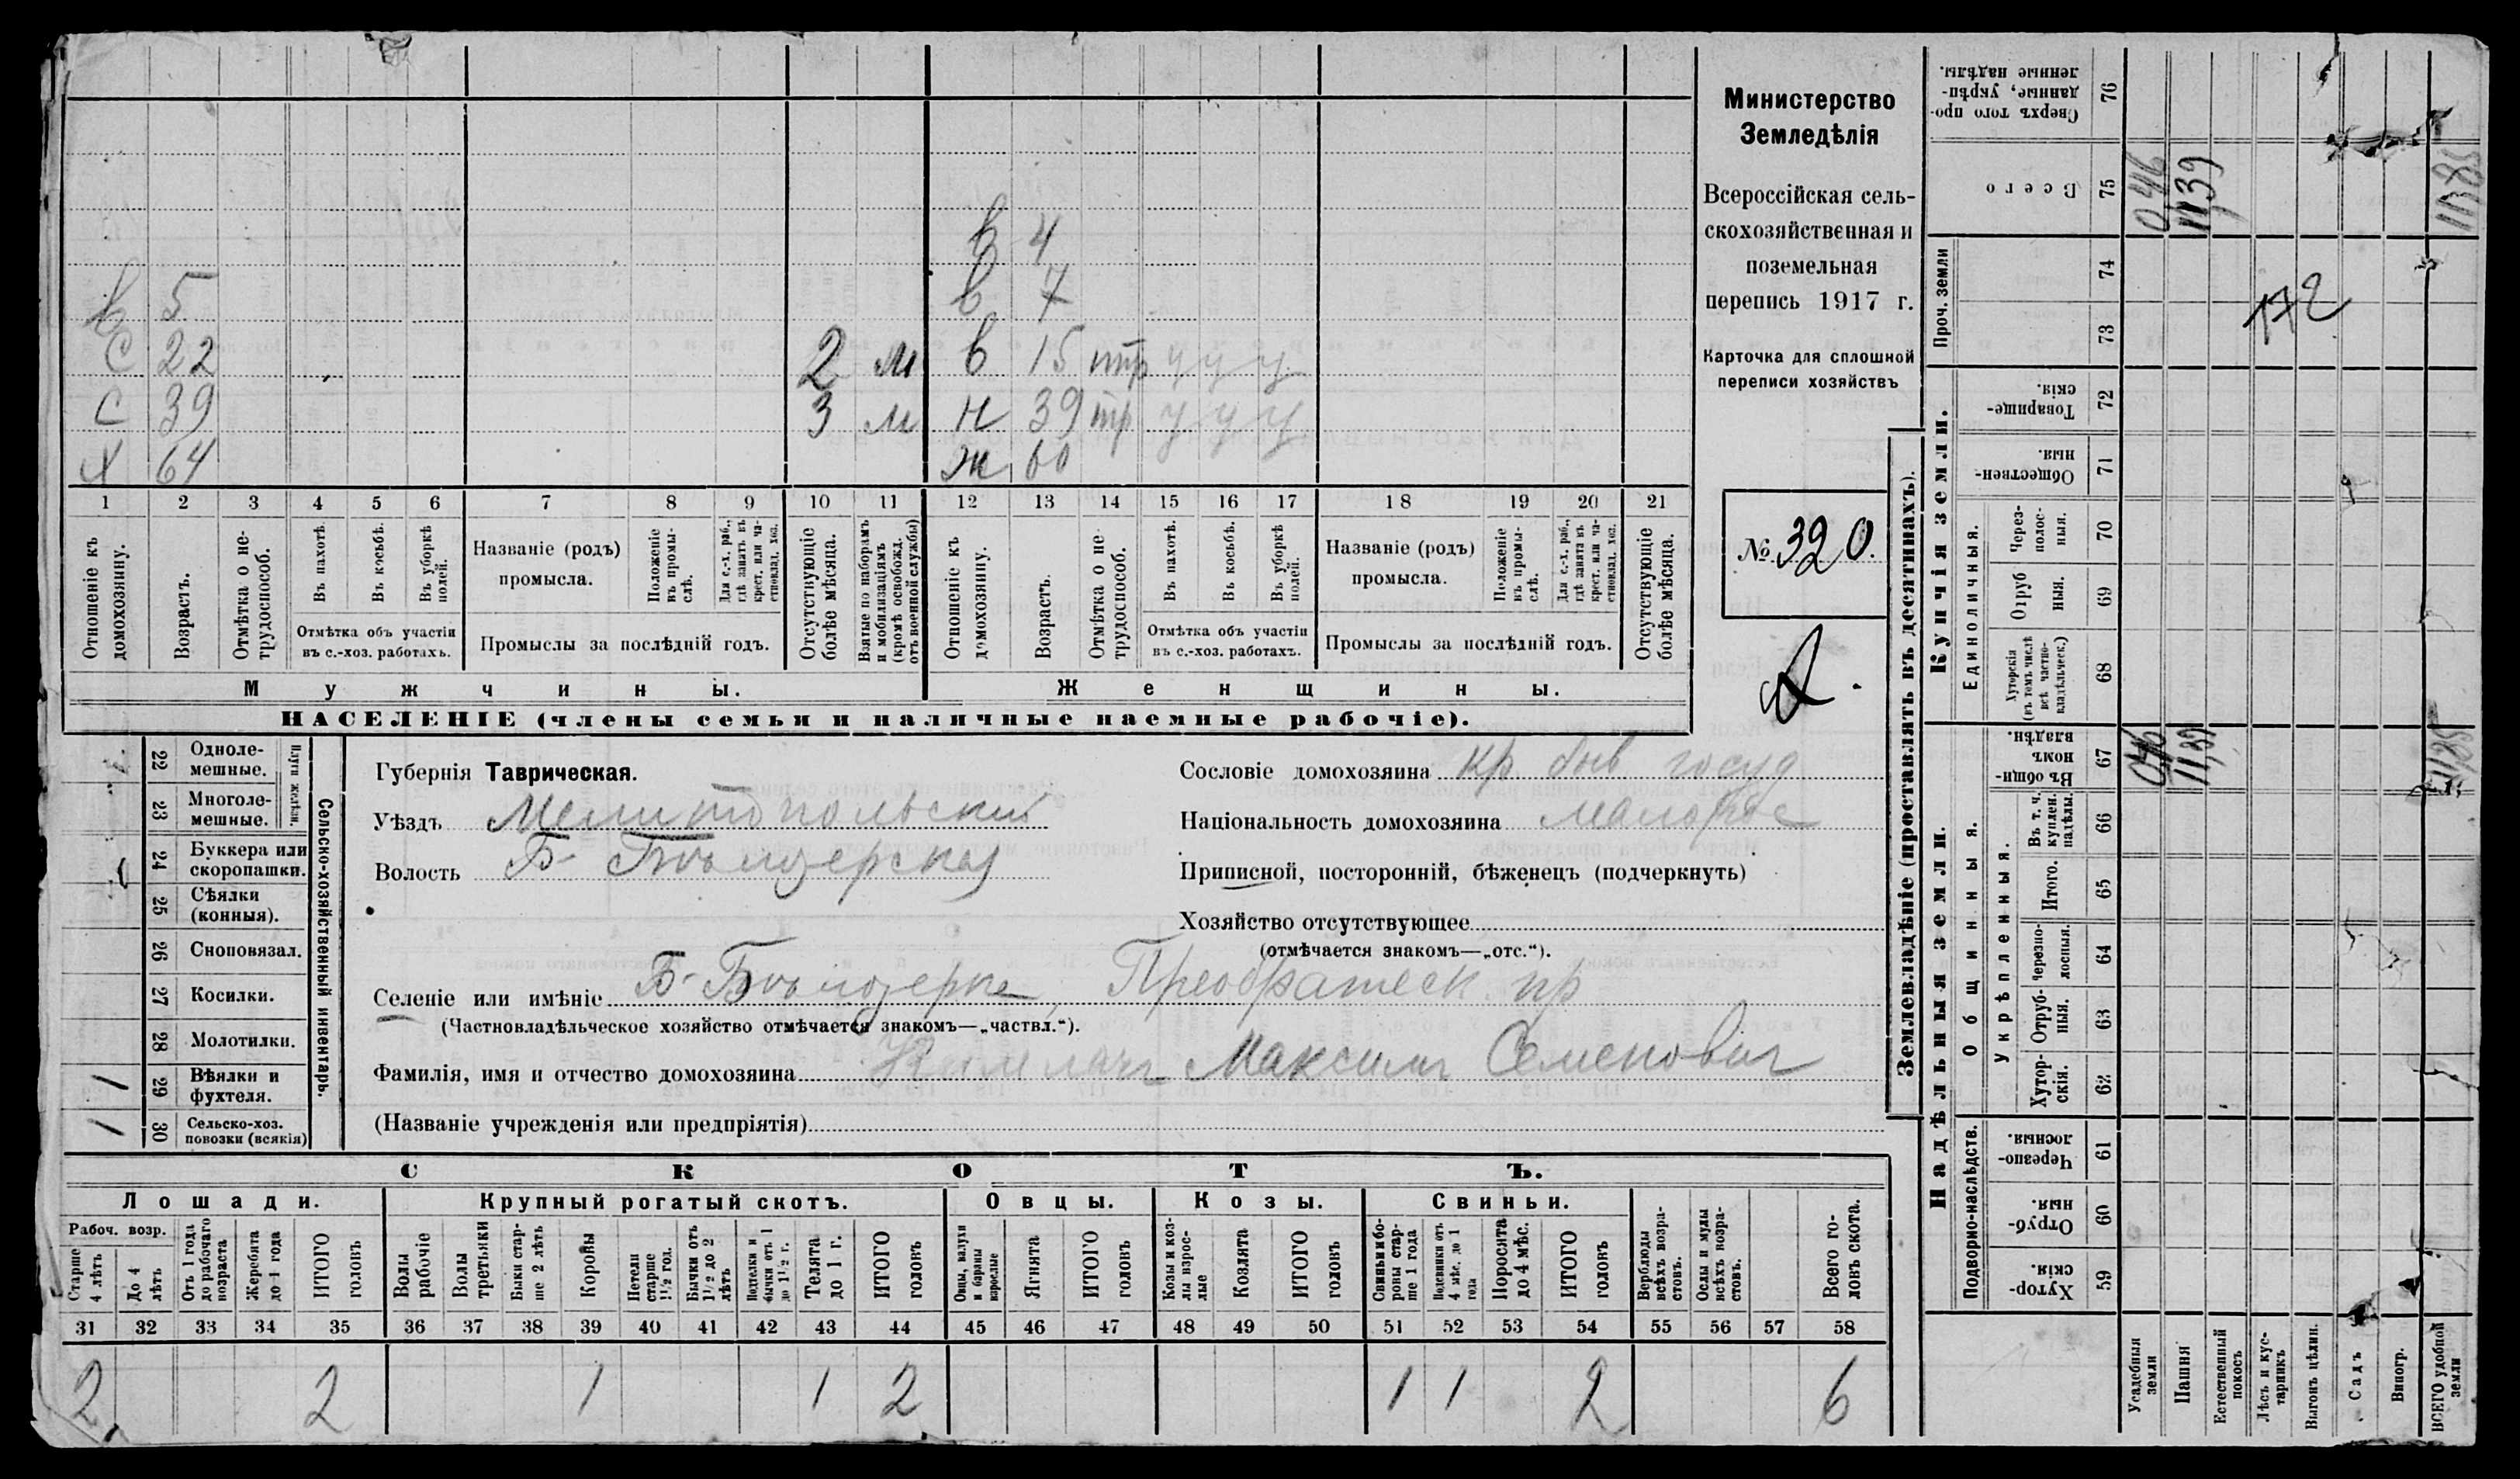 Министерство
Земледѣлія
Всероссійская сель-
скохозяйственная и
поземельная
перепись 1917 г.
Карточка для сплошной
переписи хозяйствъ
№ 320.
в 4
в 5 в 7
С 22 2 м в 15 нтр у у у
С 39 3 м Н 39 тр у у у
Х 64 ж 60
1 2 3 4 5 6 7 8 9 10 11 12 13 14 15 16 17 18 19 20 21
Отношеніе къ домохозяину.
Возрастъ.
Отмѣтка о не-трудоспособ.
Въ пахотѣ.
Въ косьбѣ.
Въ уборкѣ полей.
Отмѣтка объ участіи въ с.-хоз. работахъ.
Названіе (родъ) промысла.
Положеніе въ промы-слѣ.
Для с.-х. раб., гдѣ занятъ въ крест. или ча-стновлад. хоз.
Промыслы за послѣдній годъ.
Отсутствующіе болѣе мѣсяца.
Взятые по наборамъ и мобилизаціямъ (кромѣ освобожд. отъ военной службы)
Отношеніе къ домохозяину.
Возрастъ.
Отмѣтка о не-трудоспособ.
Въ пахотѣ.
Въ косьбѣ.
Въ уборкѣ полей.
Отмѣтка объ участіи въ с.-хоз. работахъ.
Названіе (родъ) промысла.
Положеніе въ промы-слѣ.
Для с.-х. раб., гдѣ занята въ крест. или ча-стновлад. хоз.
Промыслы за послѣдній годъ.
Отсутствующіе болѣе мѣсяца.
Мужчины. Женщины.
НАСЕЛЕНІЕ (члены семьи и наличные наемные рабочіе).
Сельско-хозяйственный инвентарь.
Плуги желѣзн.
22 Одноле-мешные.
23 Многоле-мешные.
24 Буккера или скоропашки.
25 Сѣялки (конныя).
26 Сноповязал.
27 Косилки.
28 Молотилки.
29 Вѣялки и фухтеля. 1
30 Сельско-хоз. повозки (всякія) 1
Губернія Таврическая.
Уѣздъ Мелитопольскій
Волость Б-Бѣлозерская
Сословіе домохозяина кр. быв госуд
Національность домохозяина малорос
Приписной, посторонній, бѣженецъ (подчеркнуть)
Хозяйство отсутствующее
(отмѣчается знакомъ—„отс.“).
Селеніе или имѣніе Б-Бѣлозерка, пр
(Частновладѣльческое хозяйство отмѣчается знакомъ—„частвл.“).
Фамилія, имя и отчество домохозяина Максимъ Семенович
(Названіе учрежденія или предпріятія)
СКОТЪ.
Лошади. Крупный рогатый скотъ. Овцы. Козы. Свиньи.
Рабоч. возр.
Старше 4 лѣтъ
До 4 лѣтъ
Отъ 1 года до рабочаго возраста
Жеребята до 1 года
ИТОГО головъ
Волы рабочіе
Волы третьяки
Быки стар-ше 2 лѣтъ
Коровы
Нетели старше 1½ год.
Бычки отъ 1½ до 2 лѣтъ
Нетелки и бычки отъ 1 до 1½ г.
Телята до 1 г.
ИТОГО головъ
Овцы, валухи и бараны взрослые
Ягнята
ИТОГО головъ
Козы и коз-лы взрос-лые
Козлята
ИТОГО головъ
Свиньи и бо-ровы стар-ше 1 года
Подсвинки отъ 4 мѣс. до 1 года
Поросята до 4 мѣс.
ИТОГО головъ
Верблюды всѣхъ возра-стовъ.
Ослы и мулы всѣхъ возра-стовъ.
Всего го-ловъ скота.
31 32 33 34 35 36 37 38 39 40 41 42 43 44 45 46 47 48 49 50 51 52 53 54 55 56 57 58
2 2 1 1 2 1 1 2 6
Землевладѣніе (проставлять въ десятинахъ).
Купчія земли.
Надѣльныя земли.
Сверхъ того про-данные, укрѣп-ленные надѣлы. 76
Всего 75 0,46 11,39 11,85
Проч. земли 74 73
172
Товарище-скія. 72
Обществен-ныя. 71
Единоличныя.
Через-полос-ныя. 70
Отруб-ныя. 69
Хуторскія (въ томъ числѣ всѣ частно-владѣльческ.) 68
Общинныя.
Въ общин-номъ владѣн. 67 0,46 11,39 11,85
Укрѣпленныя.
Въ т. ч. куплен. надѣлы. 66
Итого. 65
Черезпо-лосныя. 64
Отруб-ныя. 63
Хутор-скія. 62
Подворно-наслѣдств.
Черезпо-лосныя. 61
Отруб-ныя. 60
Хутор-скія. 59
Усадебныя земли
Пашня
Естественный покосъ
Лѣсъ и кус-тарникъ
Выгонъ цѣлин.
Садъ
Виногр.
ВСЕГО удобной земли